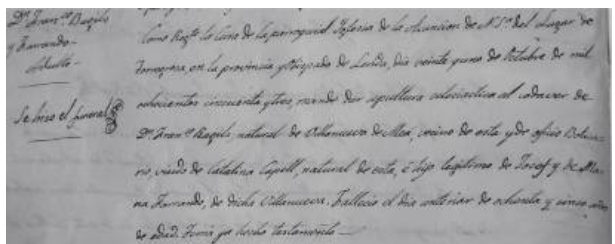 Dn. Franco. Bagils
y Farrando
Adulto
Se hizo el funeral
Como Regte. la Cura de la parroquial Iglesia de la Asuncion de N. Sra. del Lugar de
en la provincia y Obispado de Lerida, dia veinte y uno de Octubre de mil
ochocientos cincuenta y tres, mandé dar sepultura eclesiastica al cadaver de
Dn. Franco. Bagils, natural de Villanueva de Meá, vecino de esta y de oficio Botica-
rio, viudo de Catalina Capell, natural de esta, é hijo legitimo de Josef y de Maria-
na Farrando, de dicha Villanueva. Falleció el dia anterior de ochenta y cinco años
de edad. Tenia ya hecho testamento.